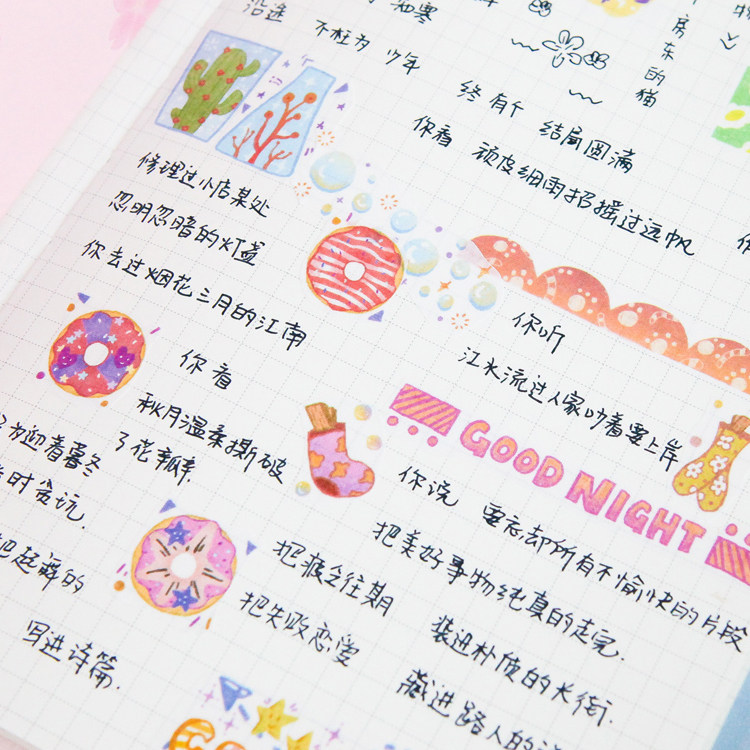 沿途
不枉为 少年
房东的猫
终有个 结局圆满
你看 顽皮细雨招摇过远帆
修理过小店某处
忽明忽暗的灯盏
你去过烟花三月的江南
你听
江水流过人家吵着要上岸
你看
秋月温柔撕破
了花瓣
GOOD NIGHT
迎着暑冬
时贪玩.
你说 要忘却所有不愉快的片段
把美好事物纯真的走完.
把疲乏往期
把失败恋爱
装进朴质的大街.
写进诗篇.
藏进路人的